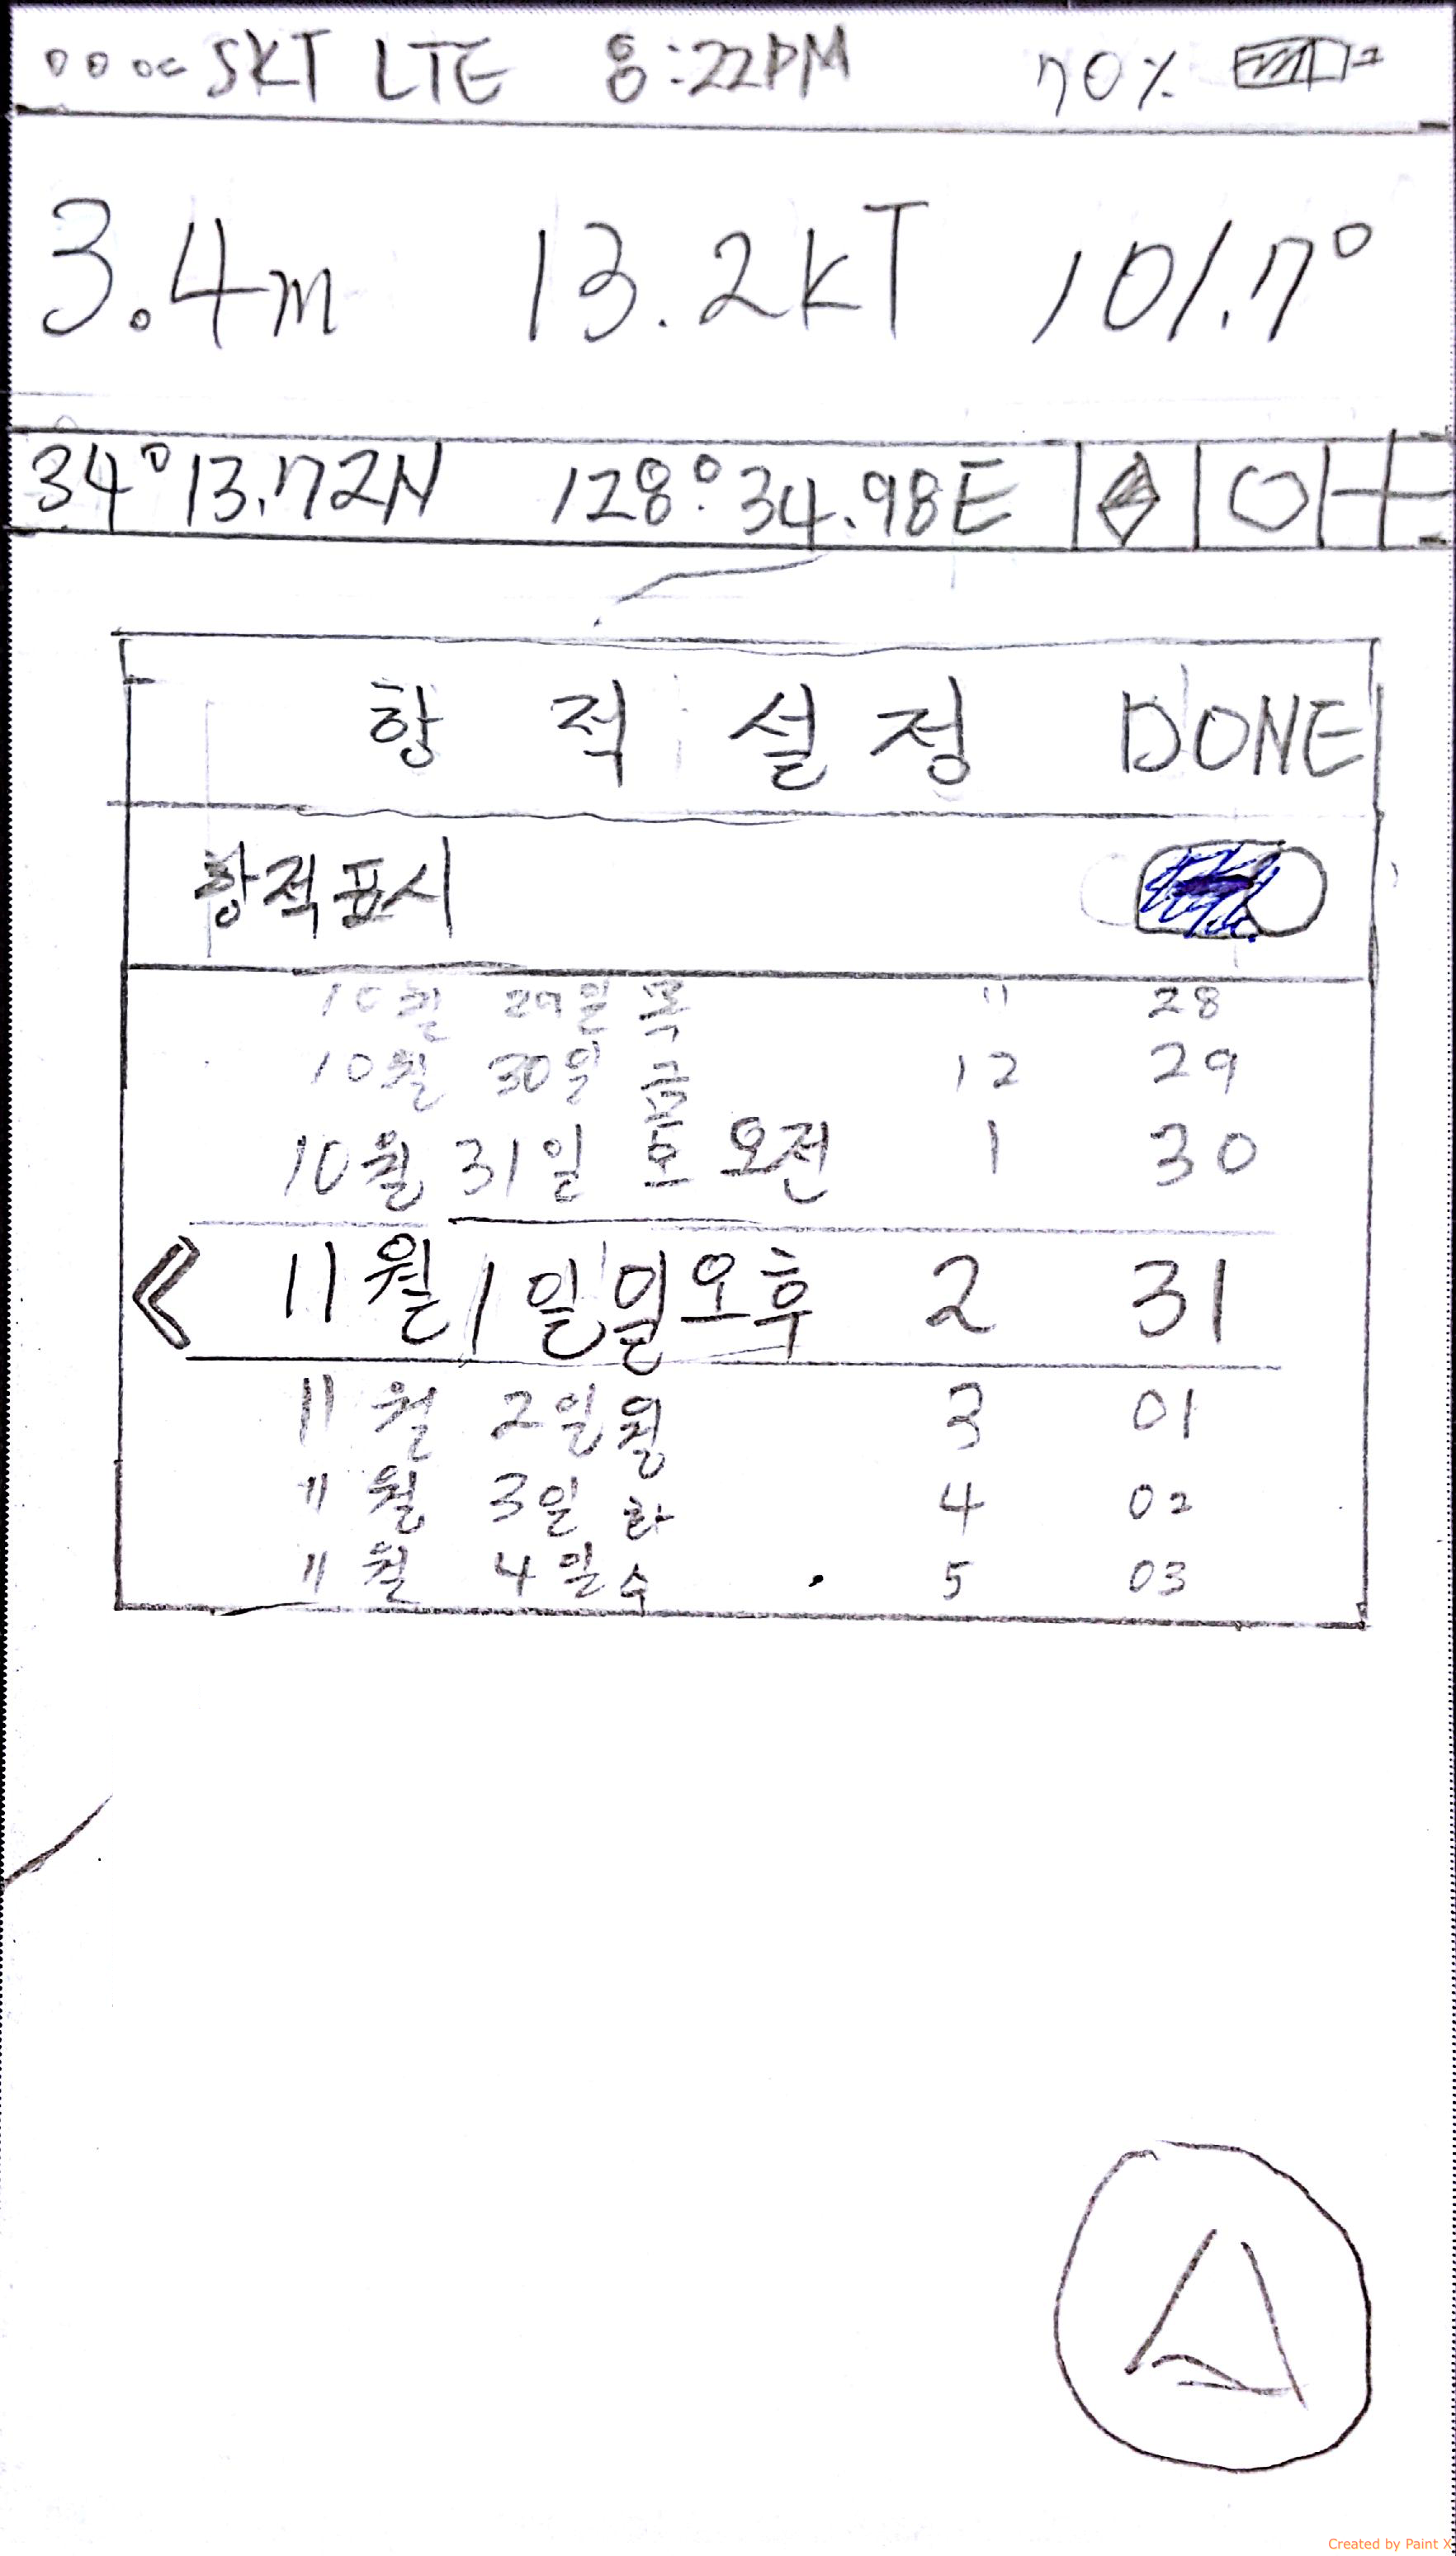 SKT LTE 8:22PM 70%
3.4m 13.2kT 101.7°
34°13.72N 128°34.98E
항적설정 DONE
항적표시
10월 29일 목 11 28
10월 30일 금 12 29
10월 31일 토 오전 1 30
11월 1일 일 오후 2 31
11월 2일 월 3 01
11월 3일 화 4 02
11월 4일 수 5 03
Created by Paint X